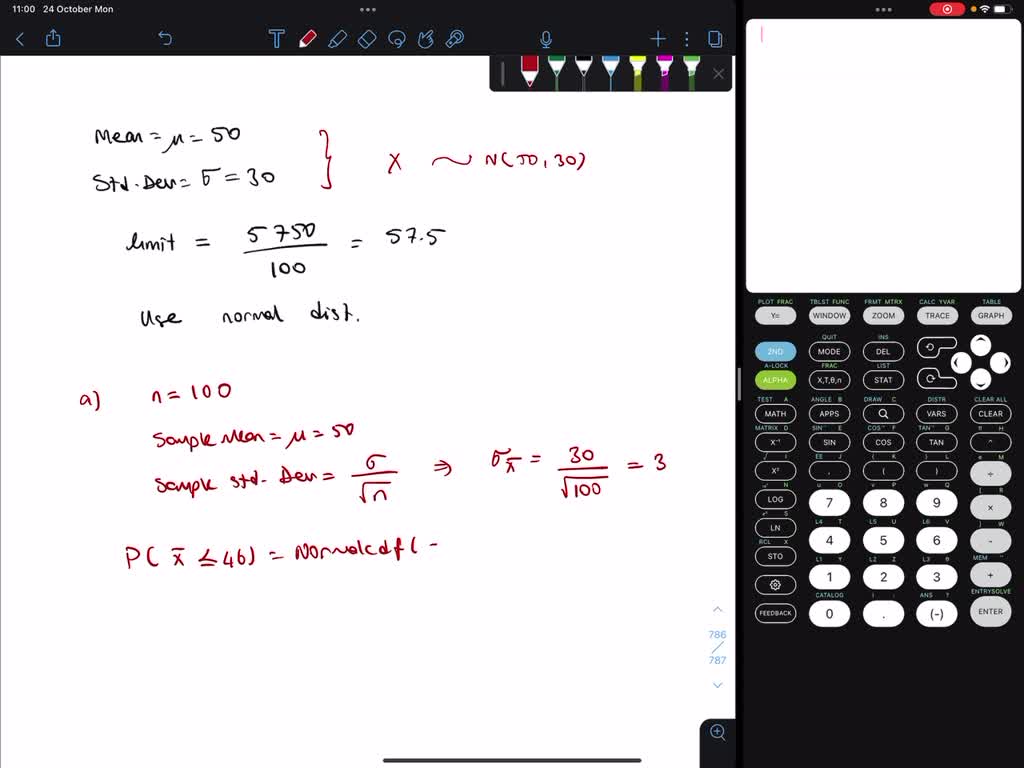 11:00 24 October Mon
Mean = μ = 50
Std. Dev = σ = 30
X ~ N(50, 30)
limit = 5750 / 100 = 57.5
Use normal dist.
a) n = 100
Sample Mean = μ = 50
Sample std. Dev = σ / √n ⇒ σx̄ = 30 / √100 = 3
P( x̄ ≤ 46) = Normalcdf( -
786
787
PLOT FRAC TBLST FUNC FRMT MTRX CALC YVAR TABLE
Y= WINDOW ZOOM TRACE GRAPH
QUIT INS
2ND MODE DEL
A-LOCK FRAC LIST
ALPHA X,T,θ,n STAT
TEST A ANGLE B DRAW C DISTR CLEAR ALL
MATH APPS VARS CLEAR
MATRIX D SIN⁻¹ E COS⁻¹ F TAN⁻¹ G π H
X⁻¹ SIN COS TAN ^
√ I EE J { K } L e M
X² , ( ) ÷
u O v P w Q [ R
LOG 7 8 9 ×
L4 T L5 U L6 V ] W
LN 4 5 6 -
RCL X L1 Y L2 Z L3 θ MEM "
STO 1 2 3 +
CATALOG i : ANS ? ENTRYSOLVE
FEEDBACK 0 . (-) ENTER